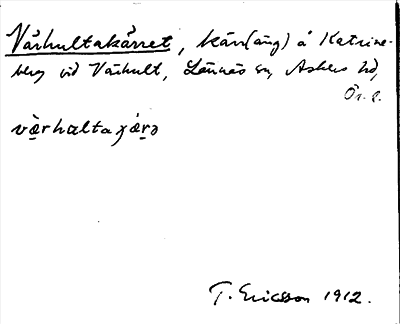 Vårhultakärret, kärr(äng) å Katrine-
berg vid Vårhult, Lännäs sn, Askers hd,
Ör. l.
T. Ericsson 1912.